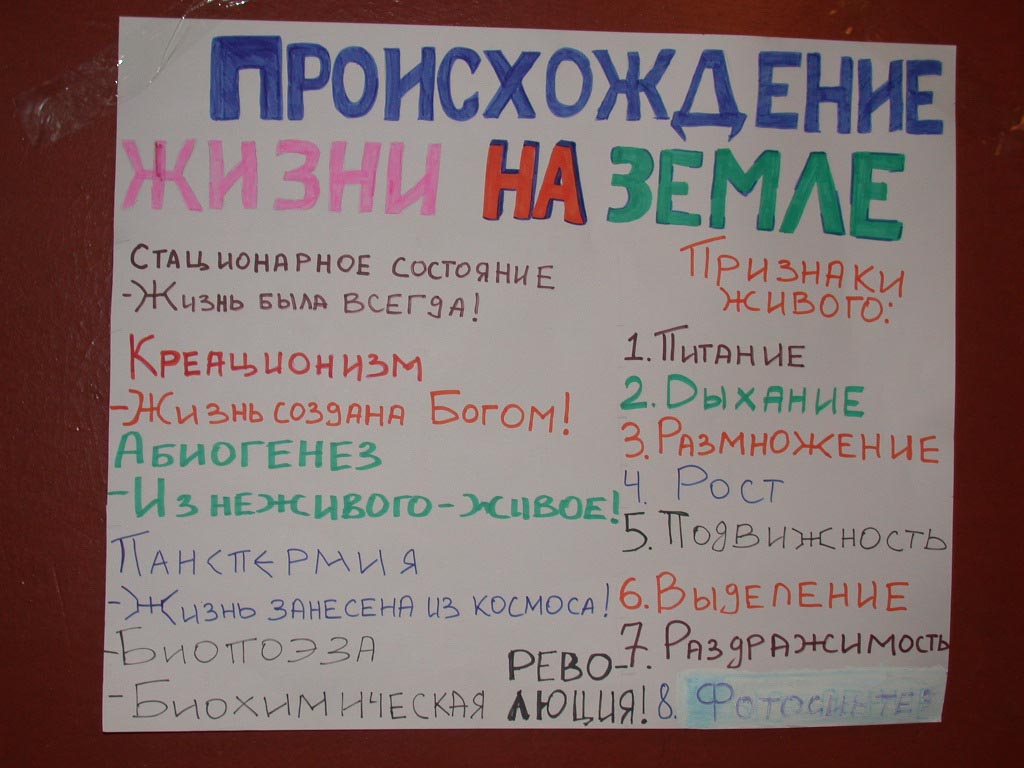 ПРОИСХОЖДЕНИЕ
ЖИЗНИ НА ЗЕМЛЕ
СТАЦИОНАРНОЕ СОСТОЯНИЕ
-ЖИЗНЬ БЫЛА ВСЕГДА!
КРЕАЦИОНИЗМ
-ЖИЗНЬ СОЗДАНА БОГОМ!
АБИОГЕНЕЗ
-ИЗ НЕЖИВОГО-ЖИВОЕ!
ПАНСПЕРМИЯ
-ЖИЗНЬ ЗАНЕСЕНА ИЗ КОСМОСА!
-БИОПОЭЗА
-БИОХИМИЧЕСКАЯ РЕВО-
ЛЮЦИЯ!
ПРИЗНАКИ
ЖИВОГО:
1. ПИТАНИЕ
2. ДЫХАНИЕ
3. РАЗМНОЖЕНИЕ
4. РОСТ
5. ПОДВИЖНОСТЬ
6. ВЫДЕЛЕНИЕ
7. РАЗДРАЖИМОСТЬ
8. ФОТОСИНТЕЗ